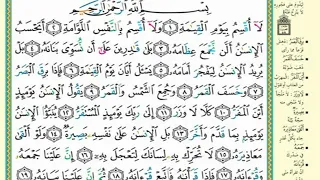 بِسْمِ ٱللَّهِ ٱلرَّحْمَٰنِ ٱلرَّحِيمِ
لَآ أُقْسِمُ بِيَوْمِ ٱلْقِيَٰمَةِ ١ وَلَآ أُقْسِمُ بِٱلنَّفْسِ ٱللَّوَّامَةِ ٢ أَيَحْسَبُ
ٱلْإِنسَٰنُ أَلَّن نَّجْمَعَ عِظَامَهُۥ ٣ بَلَىٰ قَٰدِرِينَ عَلَىٰٓ أَن نُّسَوِّىَ بَنَانَهُۥ ٤ بَلْ
يُرِيدُ ٱلْإِنسَٰنُ لِيَفْجُرَ أَمَامَهُۥ ٥ يَسْـَٔلُ أَيَّانَ يَوْمُ ٱلْقِيَٰمَةِ ٦ فَإِذَا بَرِقَ ٱلْبَصَرُ
٧ وَخَسَفَ ٱلْقَمَرُ ٨ وَجُمِعَ ٱلشَّمْسُ وَٱلْقَمَرُ ٩ يَقُولُ ٱلْإِنسَٰنُ
يَوْمَئِذٍ أَيْنَ ٱلْمَفَرُّ ١٠ كَلَّا لَا وَزَرَ ١١ إِلَىٰ رَبِّكَ يَوْمَئِذٍ ٱلْمُسْتَقَرُّ ١٢ يُنَبَّؤُا۟ ٱلْإِنسَٰنُ
يَوْمَئِذٍۭ بِمَا قَدَّمَ وَأَخَّرَ ١٣ بَلِ ٱلْإِنسَٰنُ عَلَىٰ نَفْسِهِۦ بَصِيرَةٌ ١٤ وَلَوْ أَلْقَىٰ
مَعَاذِيرَهُۥ ١٥ لَا تُحَرِّكْ بِهِۦ لِسَانَكَ لِتَعْجَلَ بِهِۦٓ ١٦ إِنَّ عَلَيْنَا جَمْعَهُۥ
وَقُرْءَانَهُۥ ١٧ فَإِذَا قَرَأْنَٰهُ فَٱتَّبِعْ قُرْءَانَهُۥ ١٨ ثُمَّ إِنَّ عَلَيْنَا بَيَانَهُۥ ١٩